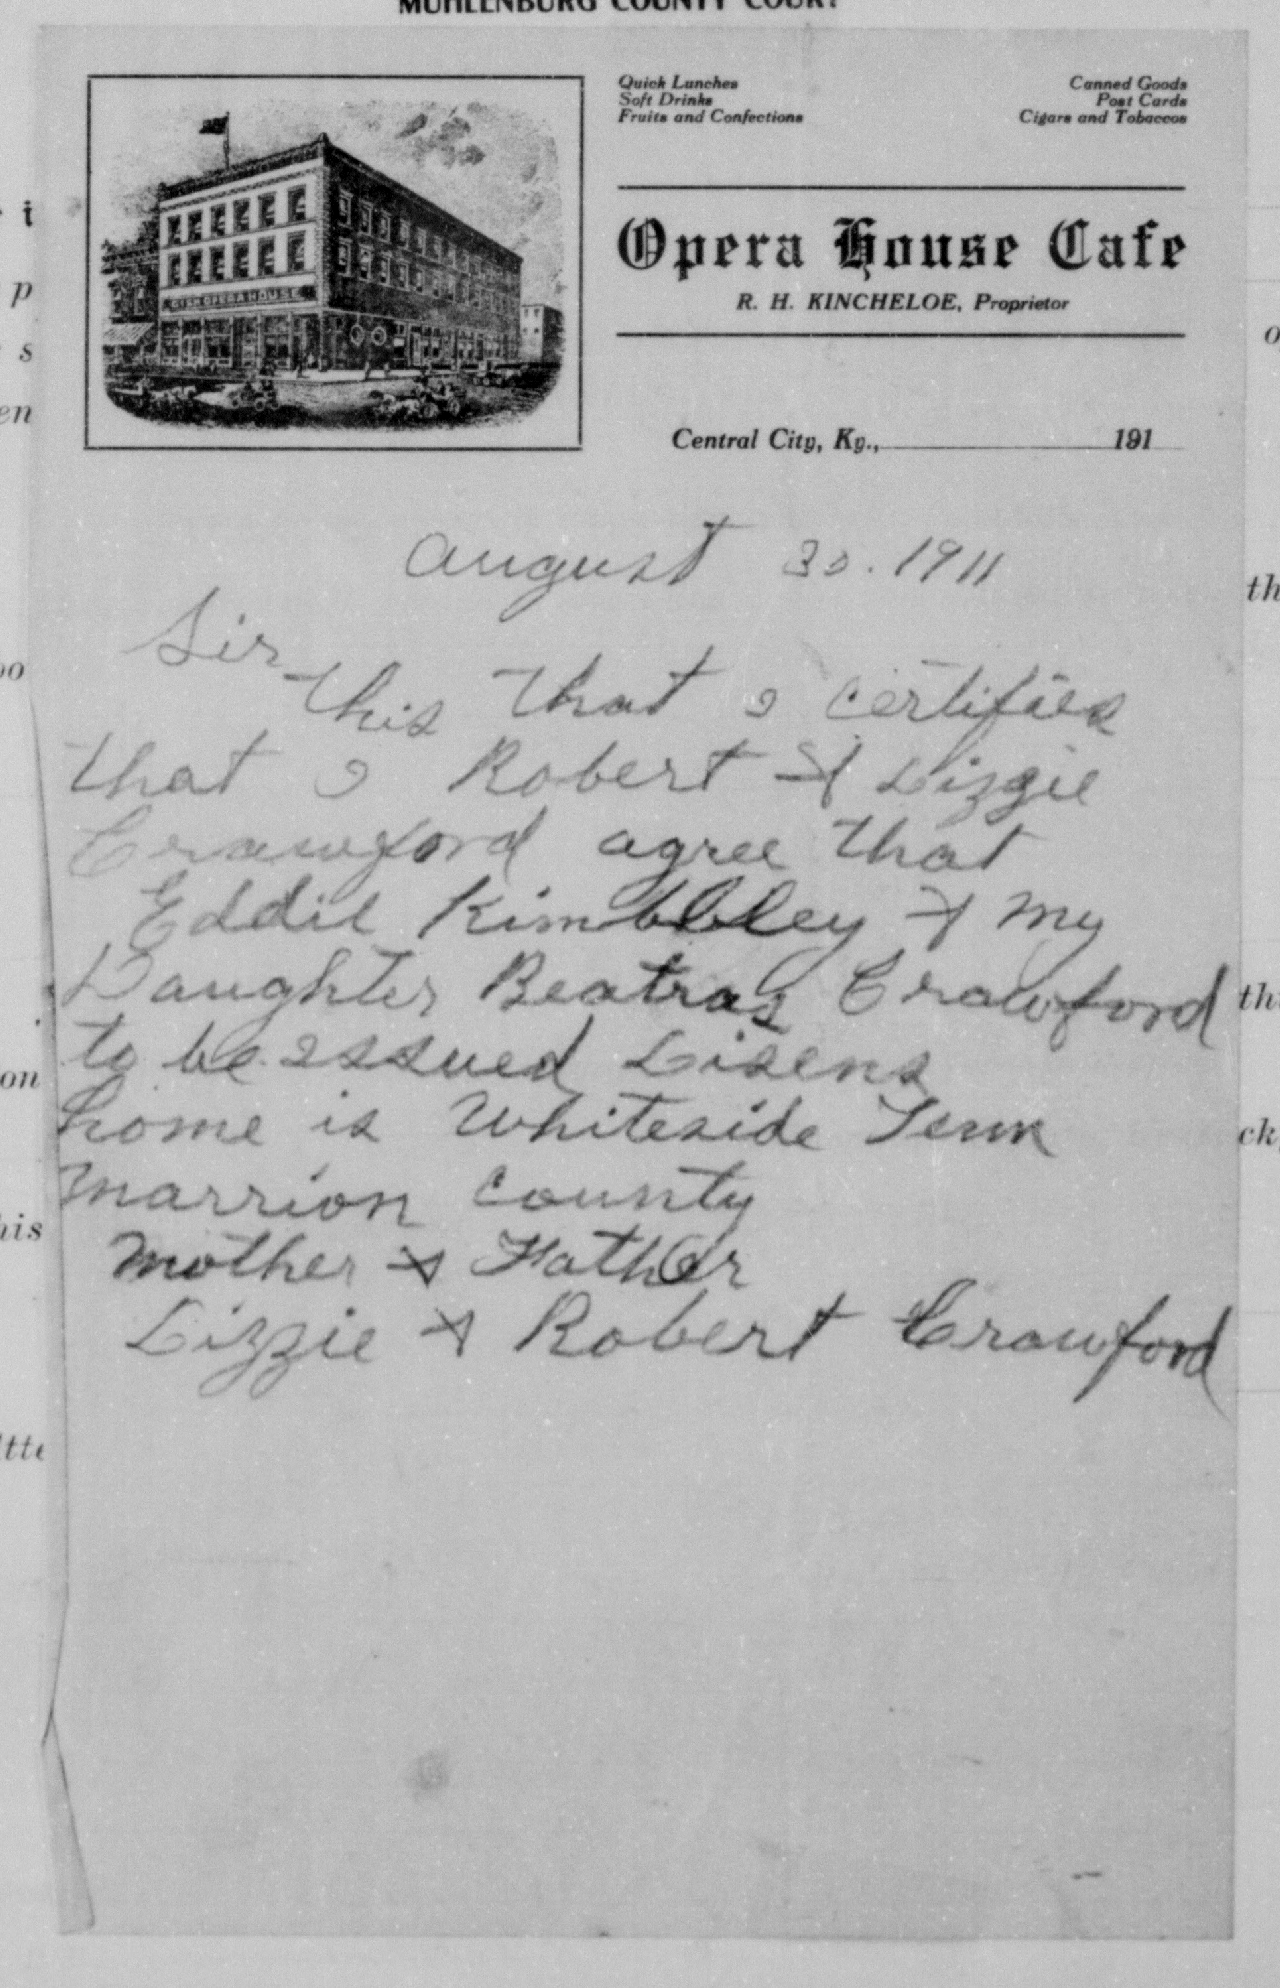 MUHLENBURG COUNTY COURT
Quick Lunches
Soft Drinks
Fruits and Confections
Canned Goods
Post Cards
Cigars and Tobaccos
Opera House Cafe
R. H. KINCHELOE, Proprietor
OPERA HOUSE
Central City, Ky., 191
August 30. 1911
Sir
this that I certifies
that I Robert & Lizzie
Crawford agree that
Eddie Kimbbley & my
Daughter Beatras Crawford
to be issued Lisens
home is Whiteside Tenn
Marrion County
Mother & Father
Lizzie & Robert Crawford